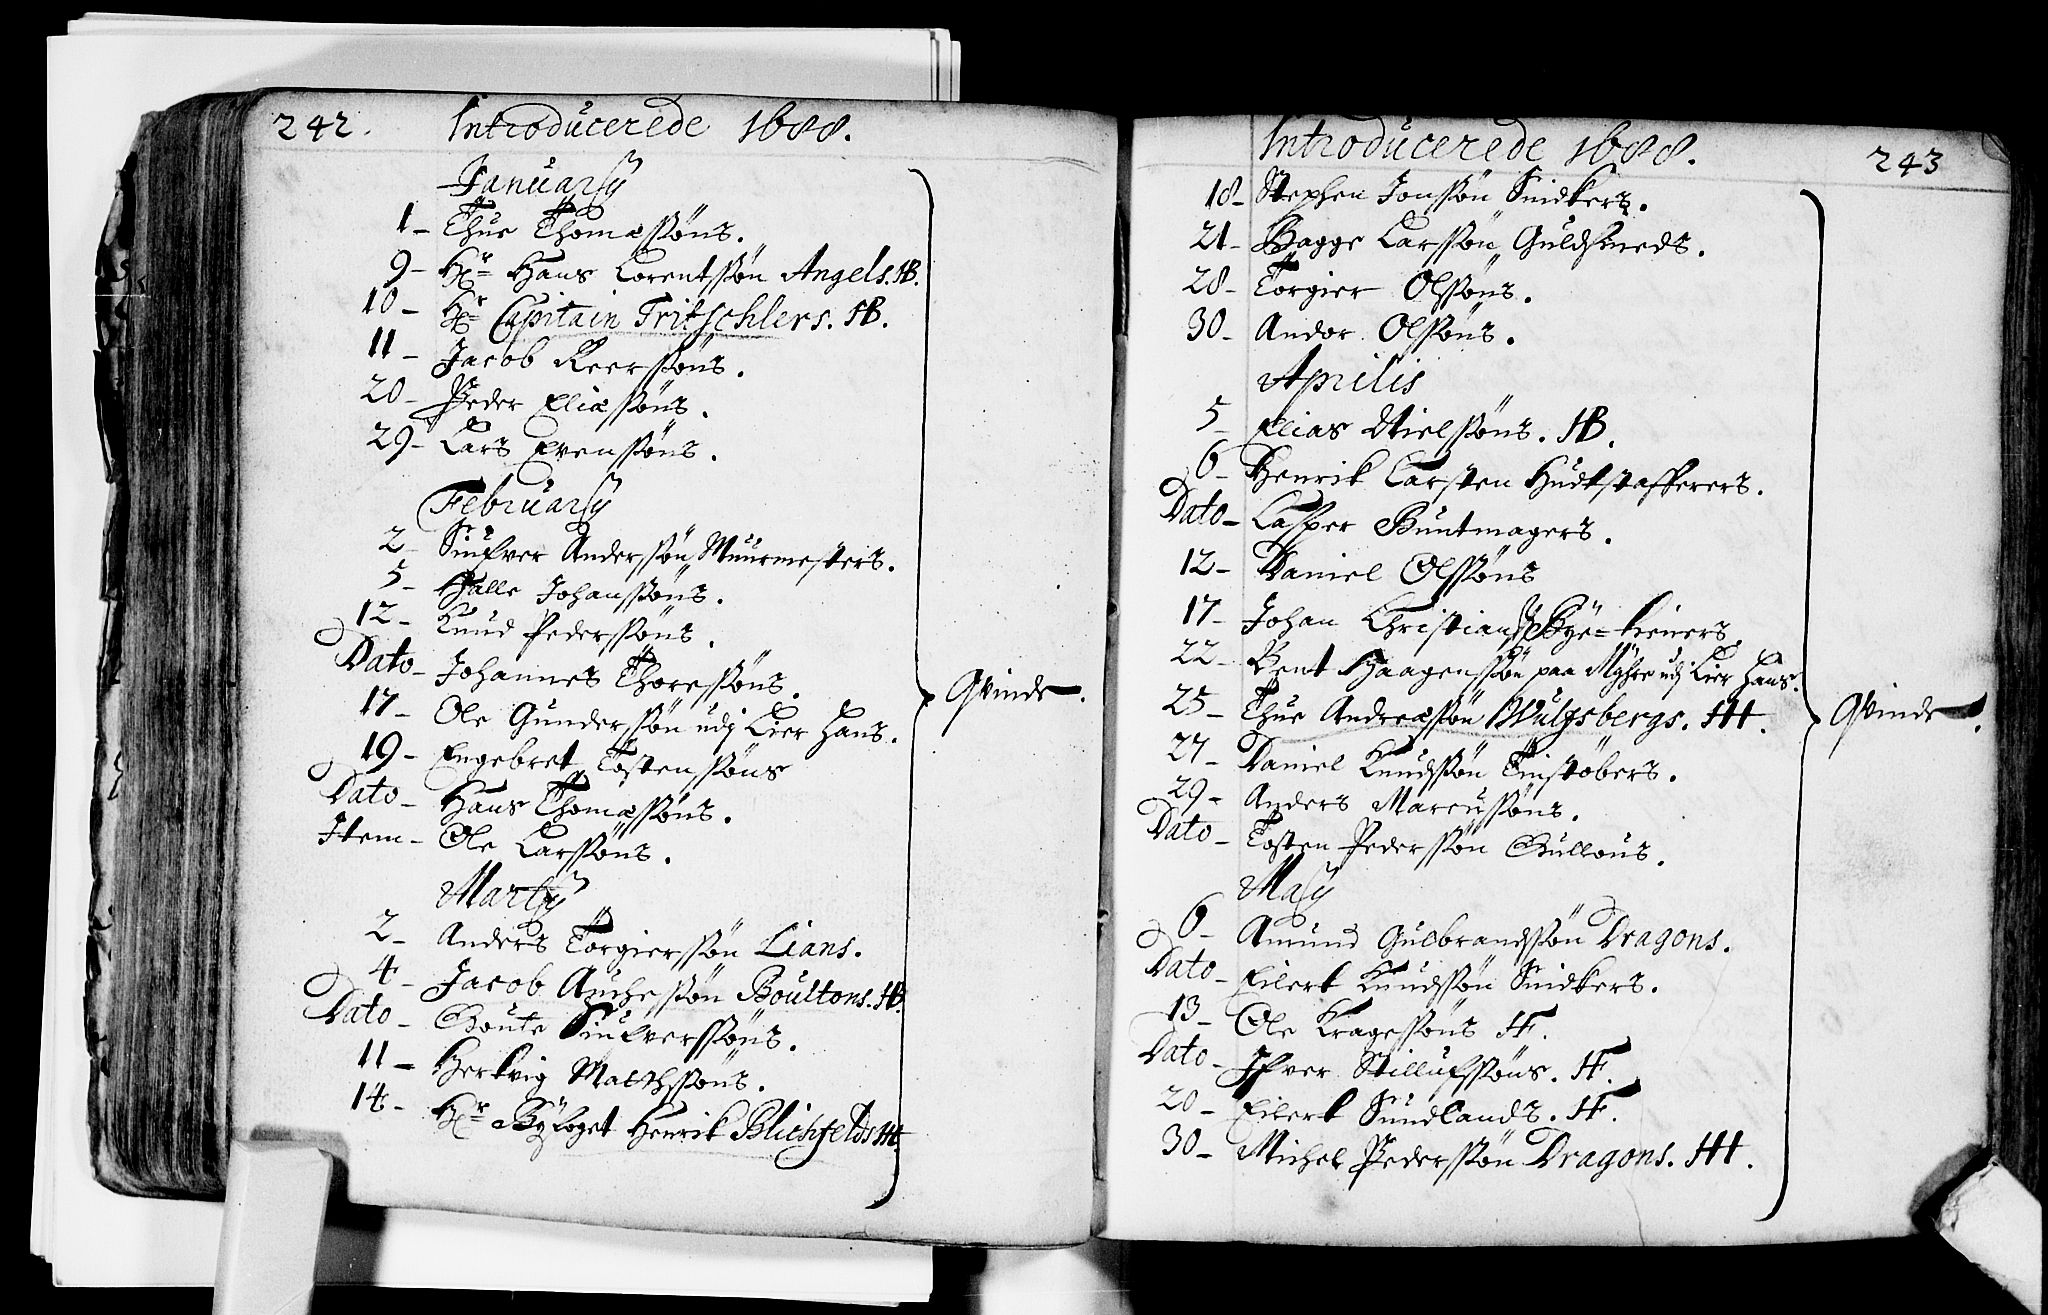 242. Introducerede 1688.
Januarÿ
1 - Thue Thomæssøns.
9 - Hr Hans Lorentssøn Angels. HB.
10 - Hr Capitain Fritschlers. HB.
11 - Jacob Reerssøns.
20 - Peder Eliæssøns.
29 - Lars Evenssøns.
Februarÿ
2 - Siufver Anderssøn Muurmesters.
5 - Halle Johanssøns.
12 - Knud Pederssøns.
Dato - Johannes Thoressøns.
17 - Ole Gunderssøn udj Lier Hans.
19 - Engebret Tostenssøns
Dato - Hans Thomæssøns.
Item - Ole Larssøns.
Martÿ
2 - Anders Torgierssøn Lians.
4 - Jacob Auchessøn Boultons. HB.
Dato - Goute Siufverssøns.
11 - Hertvig Matthssøns.
14 - Hr Byfoget Henrik Blichfelds HH.
Qvinde.
Introducerede 1688. 243
18 - Stephen Jonssøn Snidkers.
21 - Bagge Larssøn Guldsmeds.
28 - Torgier Olssøns.
30 - Andor Olssøns.
Aprilis
5 - Elias Nielssøns. HB.
6 - Henrik Carsten Hudtstafferers.
Dato - Casper Buntmagers.
12 - Daniel Olssøns
17 - Johan Christians Bye-tieners.
22 - Bent Haagenssøn paa Myhre udj Lier Hans.
25 - Thue Andreæssøn Wulfsbergs. HH.
27 - Daniel Knudssøn Tinstøbers.
29 - Anders Marcussøns.
Dato - Tosten Pederssøn Gullous.
Maÿ
6 - Amund Gulbrandssøn Dragons.
Dato - Eilert Knudssøn Snidkers.
13 - Ole Kragessøns HF.
Dato - Ifver Stillufssøns. HF.
20 - Eilert Sundlands. HF.
30 - Michel Pederssøn Dragons. HH.
Qvinde.